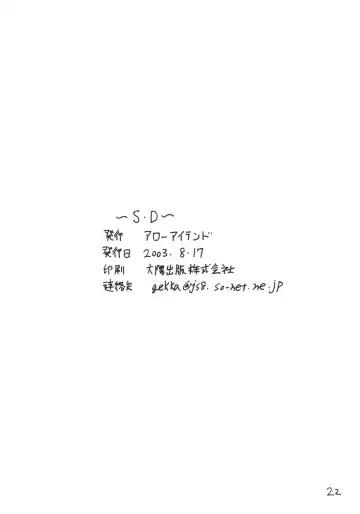 ～S・D～
発行 アローアイランド
発行日 2003.8.17
印刷 大陽出版株式会社
連絡先 gekka@js8.so-net.ne.jp
22